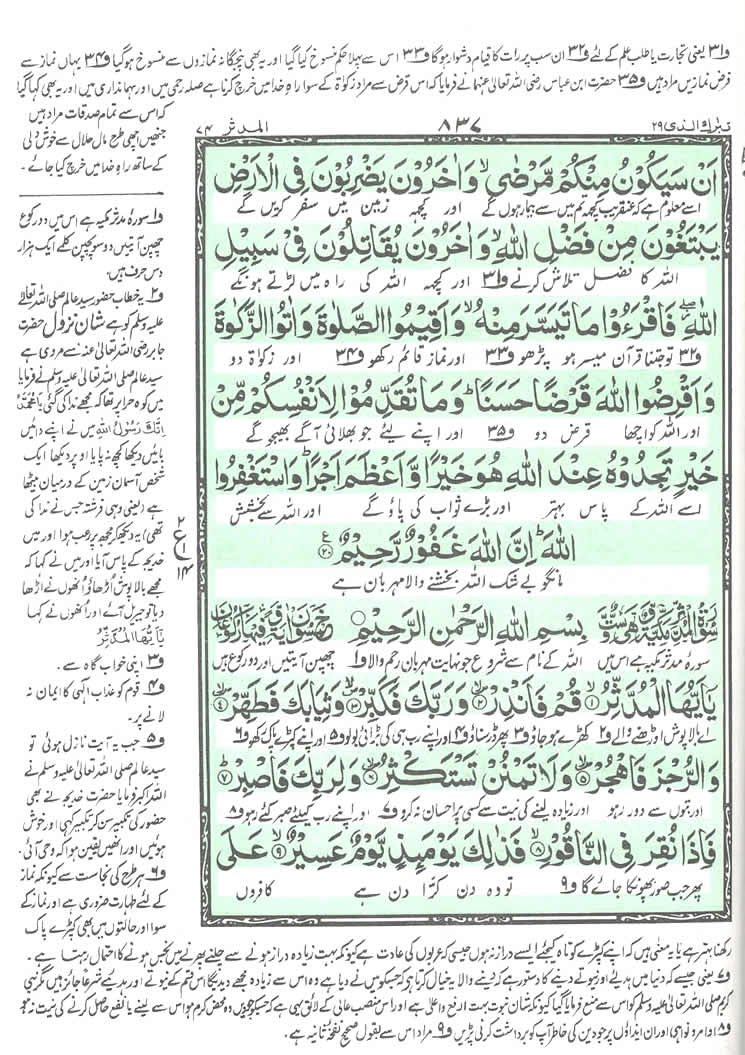 و۳۱ یعنی تجارت یا طلب علم کے لئے و۳۲ ان سب پر رات کا قیام دشوار ہوگا و۳۳ اس سے پہلا حکم منسوخ کیا گیا اور یہ بھی پنجگانہ نمازوں سے منسوخ ہوگیا و۳۴ یہاں نماز سے
فرض نمازیں مراد ہیں و۳۵ حضرت ابن عباس رضی اللہ تعالیٰ عنہما نے فرمایا کہ اس قرض سے مراد زکوٰۃ کے سوا راہِ خدا میں خرچ کرنا ہے صلہ رحمی میں اور مہمانداری میں اور یہ بھی کہا گیا
کہ اس سے تمام صدقات مراد ہیں
جنھیں اچھی طرح مال حلال سے خوش دلی
کے ساتھ راہِ خدا میں خرچ کیا جائے ۔
تبٰرک الذی ۲۹
۸۳۷
المدثر ۷۴
اَنْ سَیَكُوْنُ مِنْكُمْ مَّرْضٰىۙ وَ اٰخَرُوْنَ یَضْرِبُوْنَ فِی الْاَرْضِ
اسے معلوم ہے کہ عنقریب کچھ تم میں سے بیمار ہوں گے اور کچھ زمین میں سفر کریں گے
یَبْتَغُوْنَ مِنْ فَضْلِ اللّٰهِۙ وَ اٰخَرُوْنَ یُقَاتِلُوْنَ فِیْ سَبِیْلِ
اللہ کا فضل تلاش کرنے و۳۱ اور کچھ اللہ کی راہ میں لڑتے ہوں گے
اللّٰهِ ۖ فَاقْرَءُوْا مَا تَیَسَّرَ مِنْهُۙ وَ اَقِیْمُوا الصَّلٰوةَ وَ اٰتُوا الزَّكٰوةَ
و۳۲ تو جتنا قرآن میسر ہو پڑھو و۳۳ اور نماز قائم رکھو و۳۴ اور زکوٰۃ دو
وَ اَقْرِضُوا اللّٰهَ قَرْضًا حَسَنًاؕ وَ مَا تُقَدِّمُوْا لِاَنْفُسِكُمْ مِّنْ
اور اللہ کو اچھا قرض دو و۳۵ اور اپنے لیئے جو بھلائی آگے بھیجو گے
خَیْرٍ تَجِدُوْهُ عِنْدَ اللّٰهِ هُوَ خَیْرًا وَّ اَعْظَمَ اَجْرًاؕ وَ اسْتَغْفِرُوا
اسے اللہ کے پاس بہتر اور بڑے ثواب کی پاؤ گے اور اللہ سے بخشش
اللّٰهَؕ اِنَّ اللّٰهَ غَفُوْرٌ رَّحِیْمٌ۠ ۲۰ ع
مانگو بے شک اللہ بخشنے والا مہربان ہے
۲
ع
۱
۱۴
سُوْرَةُ الْمُدَّثِّرِ مَكِّیَّةٌ وَّهِیَ سِتٌّ بِسْمِ اللّٰهِ الرَّحْمٰنِ الرَّحِیْمِ وَّخَمْسُوْنَ اٰیَةً وَّفِیْهَا رُكُوْعَانِ
سورۂ مدثر مکیہ ہے اس میں اللہ کے نام سے شروع جو نہایت مہربان رحم والا و۱ چھپن آیتیں اور دو رکوع ہیں
یٰۤاَیُّهَا الْمُدَّثِّرُۙ ۱ قُمْ فَاَنْذِرْ۪ۙ ۲ وَ رَبَّكَ فَكَبِّرْ۪ۙ ۳ وَ ثِیَابَكَ فَطَهِّرْ۪ۙ ۴
اے بالاپوش اوڑھنے والے و۲ کھڑے ہو جاؤ و۳ پھر ڈر سناؤ و۴ اور اپنے رب ہی کی بڑائی بولو و۵ اور اپنے کپڑے پاک رکھو و۶
وَ الرُّجْزَ فَاهْجُرْ۪ۙ ۵ وَ لَا تَمْنُنْ تَسْتَكْثِرُ۪ۙ ۶ وَ لِرَبِّكَ فَاصْبِرْؕ ۷
اور بتوں سے دور رہو اور زیادہ لینے کی نیت سے کسی پر احسان نہ کرو و۷ اور اپنے رب کیلئے صبر کئے رہو و۸
فَاِذَا نُقِرَ فِی النَّاقُوْرِۙ ۸ فَذٰلِكَ یَوْمَىٕذٍ یَّوْمٌ عَسِیْرٌۙ ۹ عَلَى
پھر جب صور پھونکا جائے گا و۹ تو وہ دن کڑا دن ہے کافروں
و۱ سورۂ مدثر مکیہ ہے اس میں دو رکوع
چھپن آیتیں دو سو پچپن کلمے ایک ہزار
دس حرف ہیں ۔
و۲ یہ خطاب حضور سید عالم صلی اللہ تعالیٰ
علیہ وسلم کو ہے شان نزول حضرت
جابر رضی اللہ تعالیٰ عنہ سے مروی ہے
سید عالم صلی اللہ تعالیٰ علیہ وسلم نے فرمایا
میں کوہ حرا پر تھا کہ مجھے ندا کی گئی یَا مُحَمَّدُ
اِنَّكَ رَسُوْلُ اللهِ میں نے اپنے دائیں
بائیں دیکھا کچھ نہ پایا اوپر دیکھا ایک
شخص آسمان زمین کے درمیان بیٹھا
ہے (یعنی وہی فرشتہ جس نے ندا کی
تھی) یہ دیکھ کر مجھ پر رعب ہوا اور میں
خدیجہ کے پاس آیا اور میں نے کہا کہ
مجھے بالاپوش اُڑھاؤ اُنھوں نے اڑھا
دیا تو جبریل آئے اور اُنھوں نے کہا
یٰۤاَیُّهَا الْمُدَّثِّرُ
و۳ اپنی خواب گاہ سے ۔
و۴ قوم کو عذاب الٰہی کا ایمان نہ
لانے پر ۔
و۵ جب یہ آیت نازل ہوئی تو
سید عالم صلی اللہ تعالیٰ علیہ وسلم نے
اللہ اکبر فرمایا حضرت خدیجہ نے بھی
حضور کی تکبیر سن کر تکبیر کہی اور خوش
ہوئیں اور انھیں یقین ہوا کہ وحی آئی ۔
و۶ ہر طرح کی نجاست سے کیونکہ نماز
کے لئے طہارت ضروری ہے اور نماز کے
سوا اور حالتوں میں بھی کپڑے پاک
رکھنا بہتر ہے یا یہ معنی ہیں کہ اپنے کپڑے کوتاہ کیجئے ایسے دراز نہ ہوں جیسی کہ عربوں کی عادت ہے کیونکہ بہت زیادہ دراز ہونے سے چلنے پھرنے میں نجس ہونے کا احتمال رہتا ہے ۔
و۷ یعنی جیسے کہ دنیا میں ہدیے اور نیوتے دینے کا دستور ہے کہ دینے والا یہ خیال کرتا ہے کہ جس کو میں نے دیا ہے وہ اس سے زیادہ مجھے دیدیگا اس قسم کے نیوتے اور ہدیے شرعاً جائز ہیں مگر نبی
کریم صلی اللہ تعالیٰ علیہ وسلم کو اس سے منع فرمایا گیا کیونکہ شان نبوت بہت ارفع و اعلیٰ ہے اور اس منصب عالی کے لائق یہی ہے کہ جس کو جو دیں وہ محض کرم ہو اس سے لینے یا نفع حاصل کرنے کی نیت نہ ہو
و۸ اوامر و نواہی اور ان ایذاؤں پر جو دین کی خاطر آپ کو برداشت کرنی پڑیں و۹ مراد اس سے بقول صحیح نفخۂ ثانیہ ہے ۔